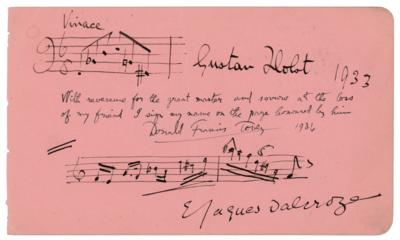 Vivace
Gustav Holst 1933
With reverence for the great master and sorrow at the loss
of my friend I sign my name on the page honoured by him
Donald Francis Tovey 1934
E Jaques Dalcroze